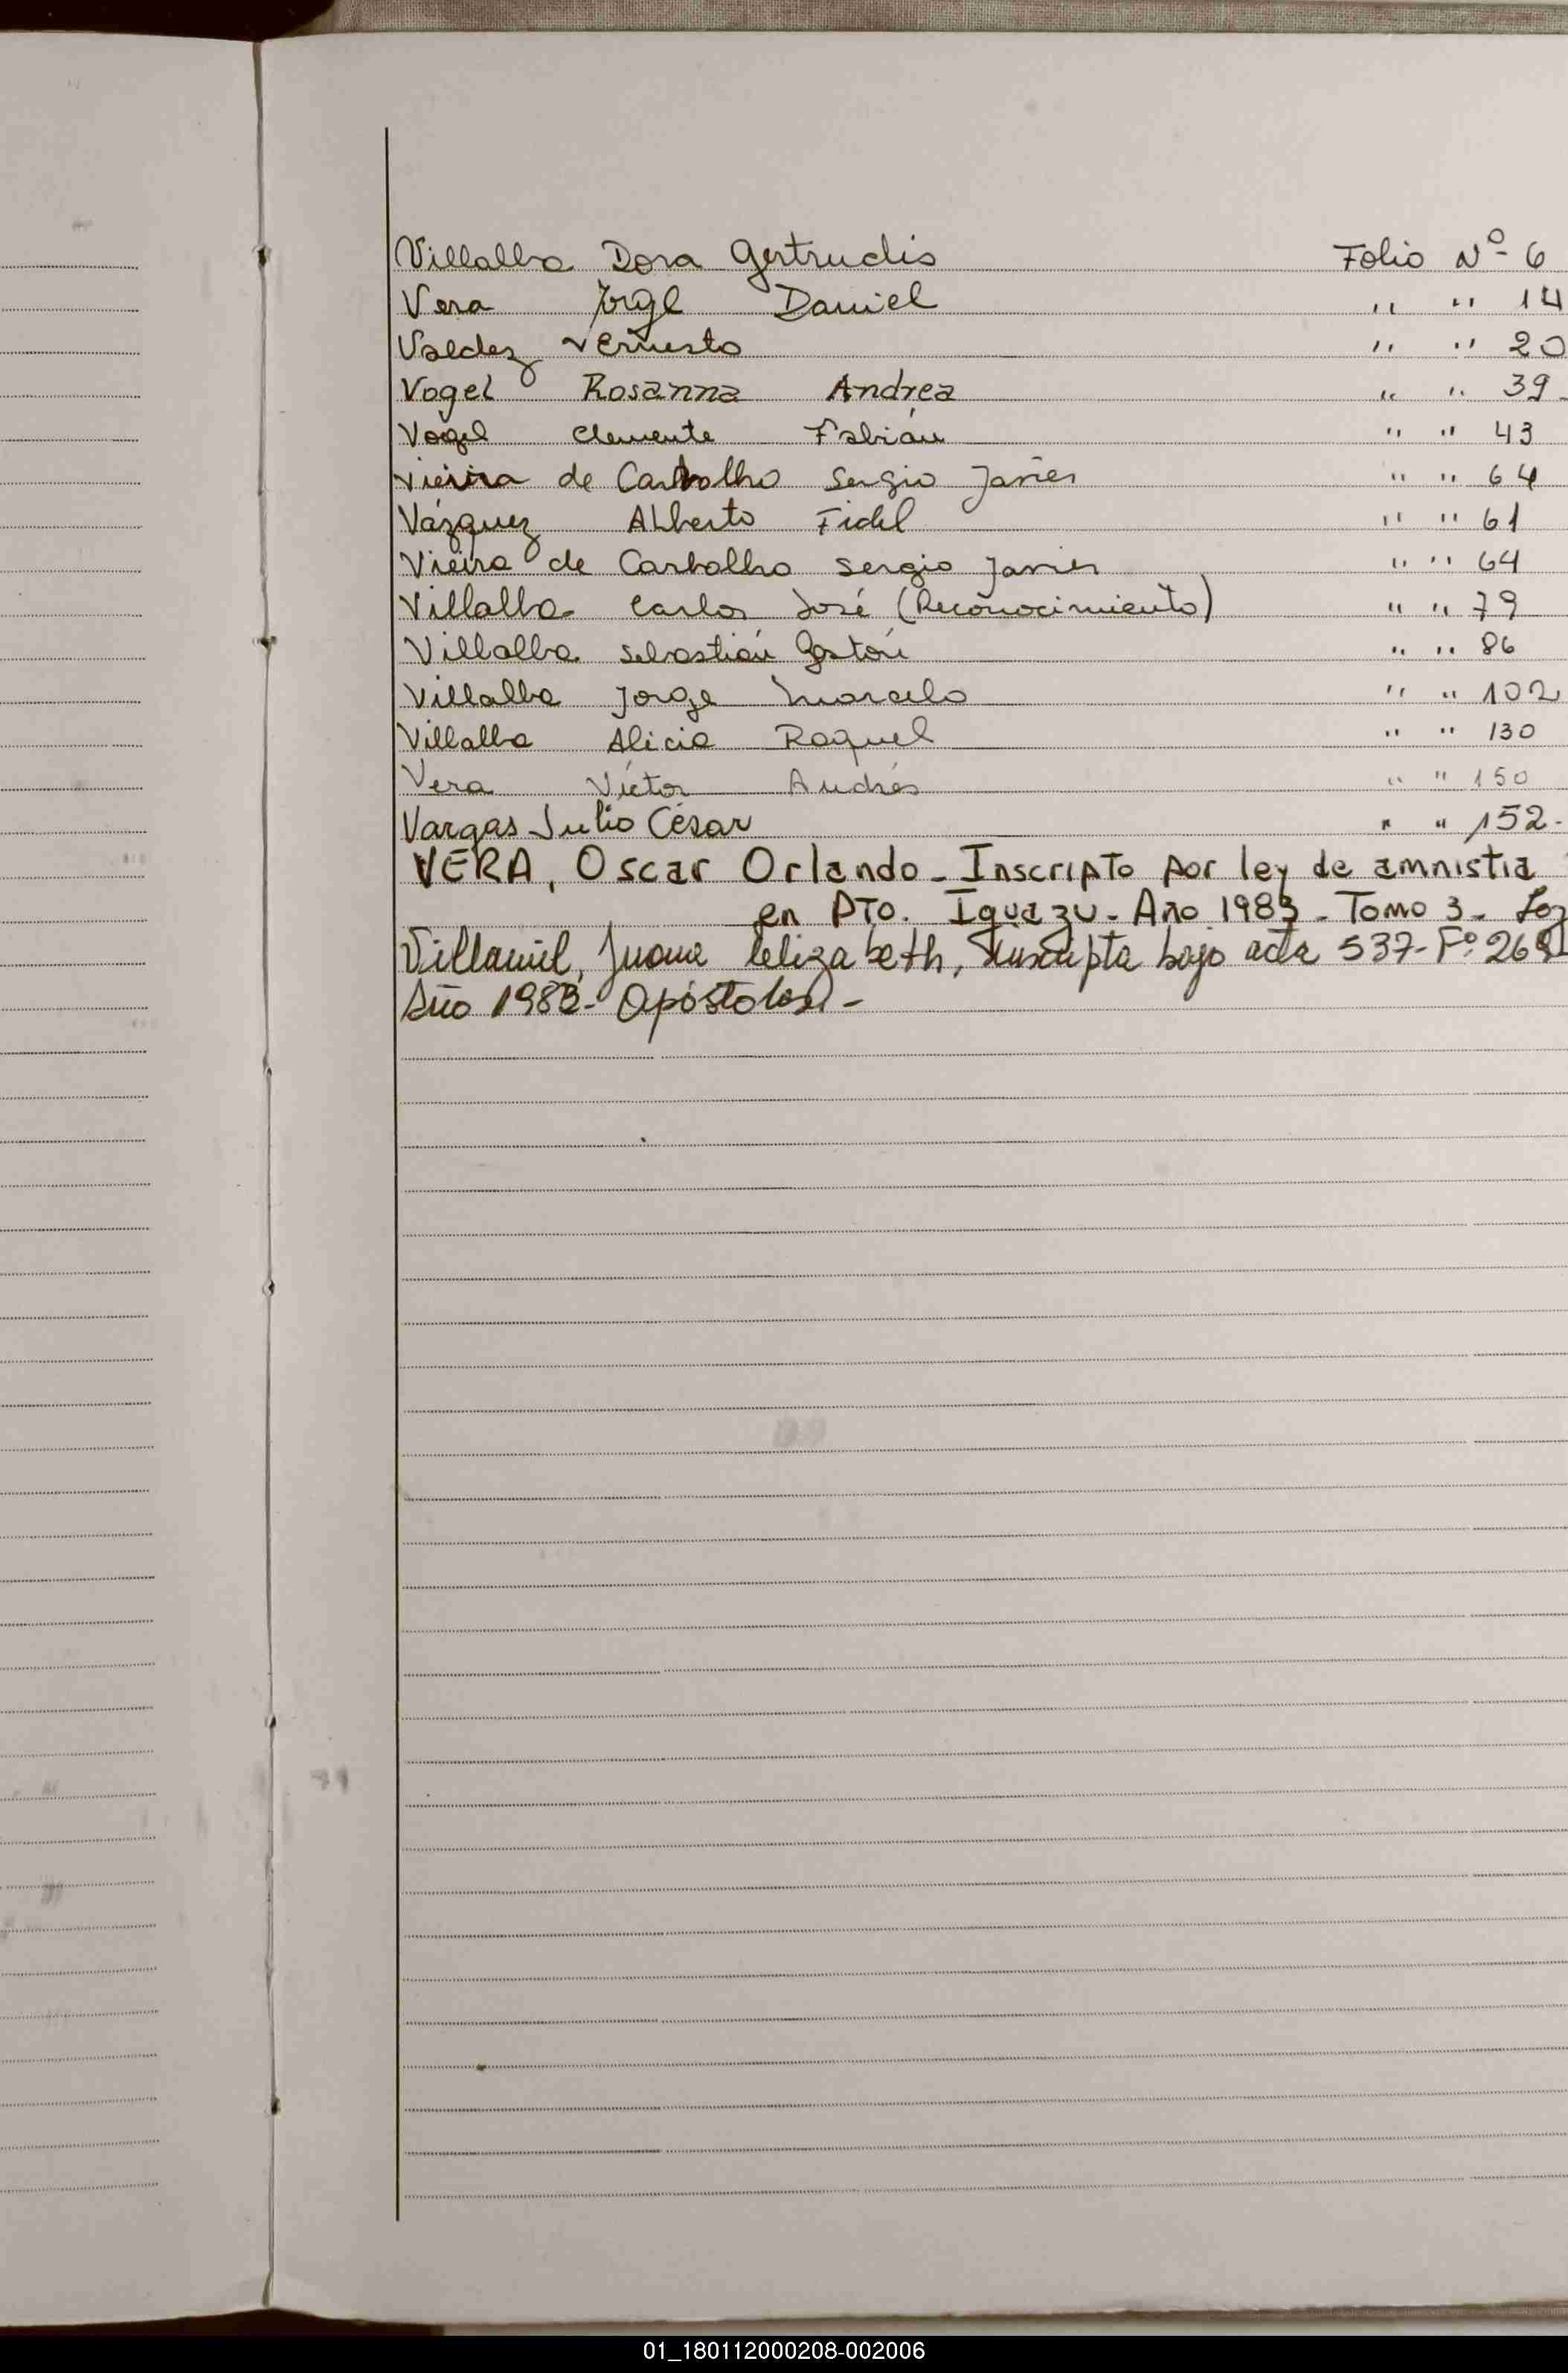 Villalba Dora Gertrudis Folio Nº 6
Vera Jorge Daniel " " 14
Valdez Ernesto " " 20
Vogel Rosanna Andrea " " 39
Vogel Clemente Fabián " " 43
Vieira de Carbalho Sergio Javier " " 64
Vázquez Alberto Fidel " " 61
Vieira de Carbalho Sergio Javier " " 64
Villalba Carlos José (Reconocimiento) " " 79
Villalba Sebastián Gastón " " 86
Villalba Jorge Marcelo " " 102
Villalba Alicia Raquel " " 130
Vera Víctor Andrés " " 150
Vargas Julio César " " 152.
VERA, Oscar Orlando - Inscripto por ley de amnistia
en Pto. Iguazu - Año 1983 - Tomo 3 -
Villamil, Juana Elizabeth, inscripta bajo acta 537 - Fº
Año 1983 - Apóstoles -
01_180112000208-002006